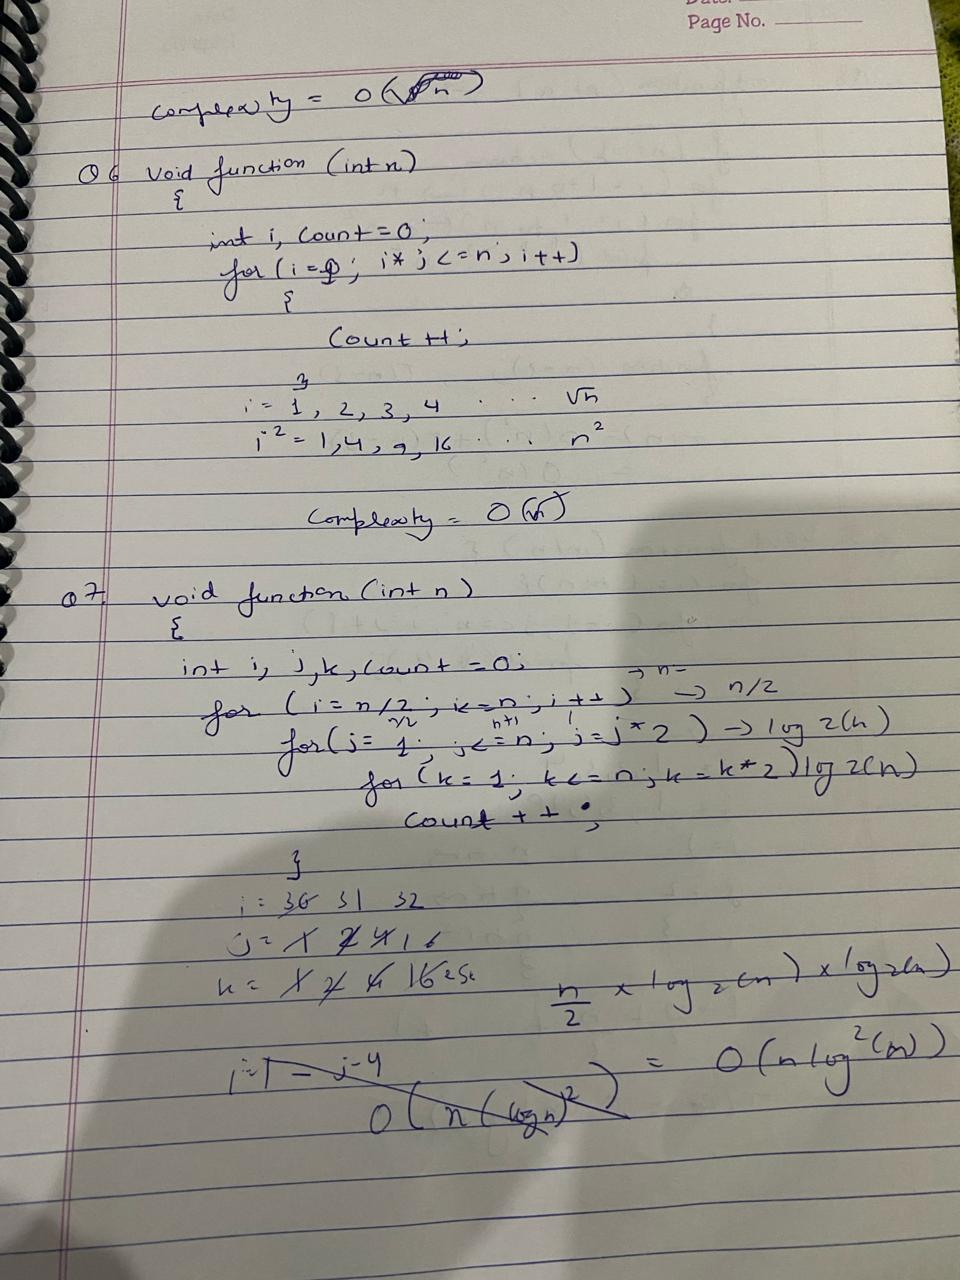 Page No.
Complexity = O(√n)
Q6 void function (int n)
{
int i, Count = 0;
for (i = 1; i * i <= n; i++)
{
Count ++;
}
i = 1, 2, 3, 4 . . . . √n
i² = 1, 4, 9, 16 . . . . n²
Complexity = O(√n)
Q7. void function (int n)
{
int i, j, k, Count = 0;
→ n-
for (i = n/2; i <= n; i++) → n/2
n/2 n+1 1
for (j = 1; j <= n; j = j * 2) → log 2(n)
for (k = 1; k <= n; k = k * 2) log 2(n)
Count ++;
}
i = 30 31 32
j = 1 2 4 16
k = 1 2 4 16 256
n/2 × log 2(n) × log 2(n)
i=1 – j-4
O(n(log n)²) = O(n log²(n))